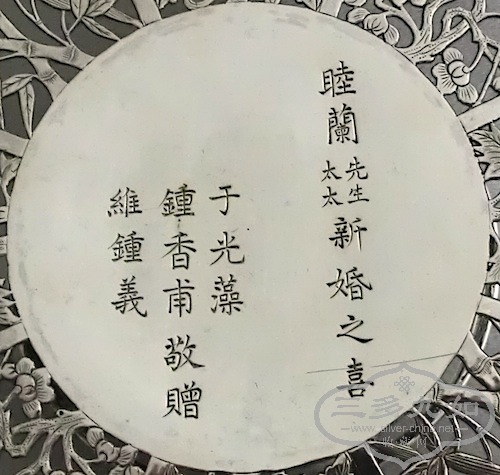 睦蘭先生太太新婚之喜
于光藻
鍾香甫敬贈
維鍾義
三多九如
www.silver-china.net